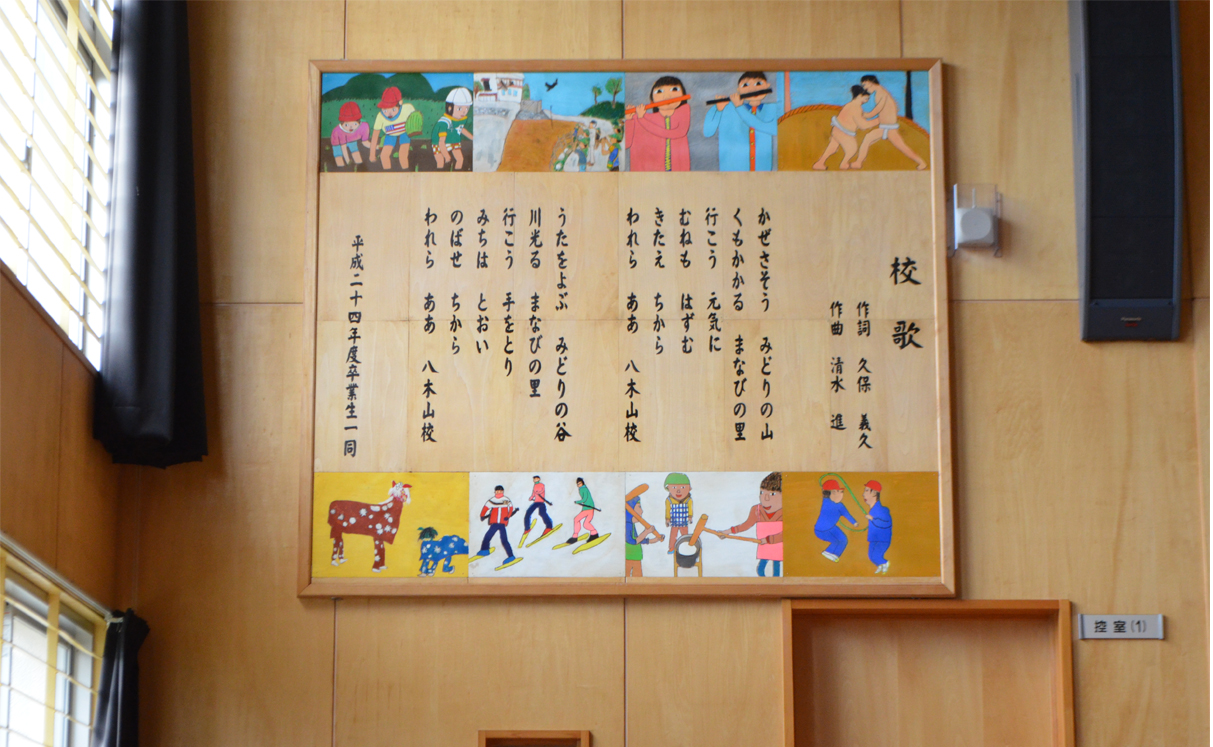 校歌
作詞 久保 義久
作曲 清水 進
かぜさそう みどりの山
くもかかる まなびの里
行こう 元気に
むねも はずむ
きたえ ちから
われら ああ 八木山校
うたをよぶ みどりの谷
川光る まなびの里
行こう 手をとり
みちは とおい
のばせ ちから
われら ああ 八木山校
平成二十四年度卒業生一同
控室(1)